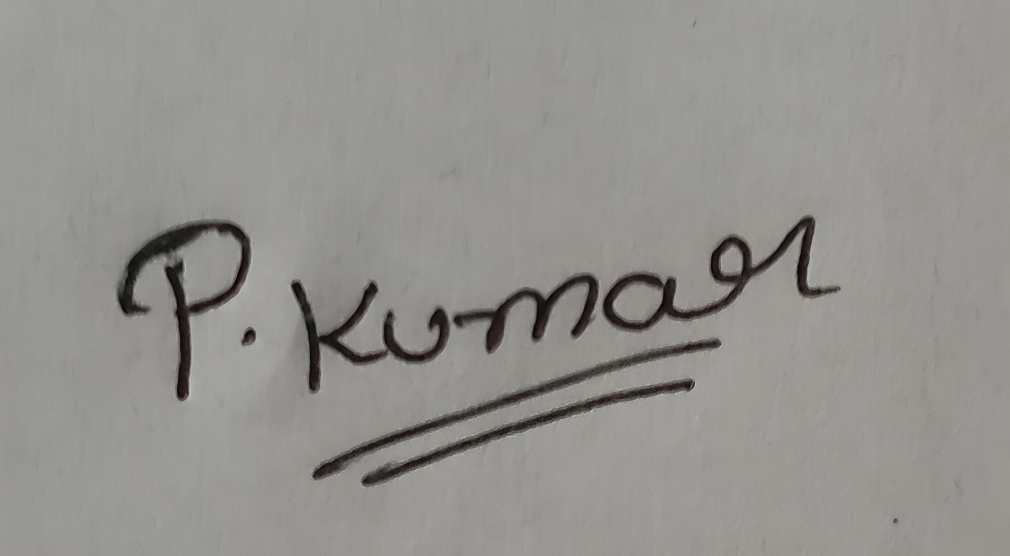 P. Kumar